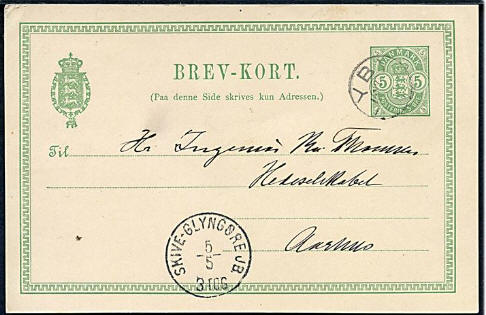 BREV-KORT.
DANMARK
5 5
(Paa denne Side skrives kun Adressen.)
BY
Til
Hr. Ingeniør Kr. Thomsen
Hedeselskabet
Aarhus
SKIVE-GLYNGØRE JB
5
5
3 TOG